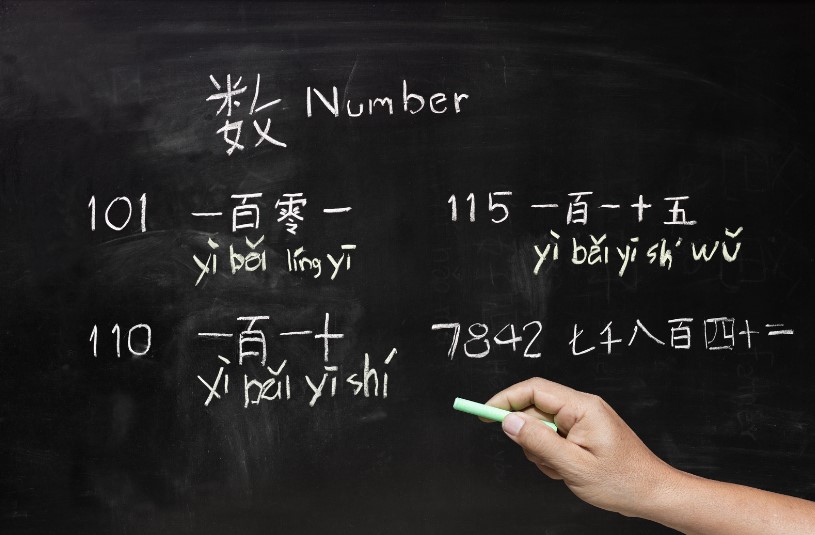 数 Number
101 一百零一
yì bǎi líng yī
115 一百一十五
yì bǎi yī shí wǔ
110 一百一十
yì bǎi yī shí
7842 七千八百四十二